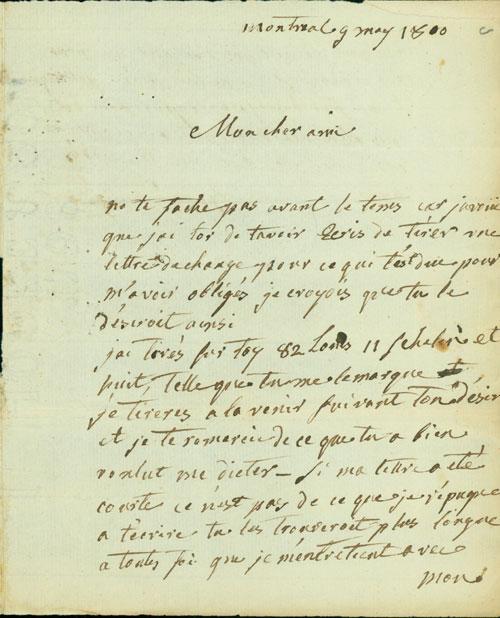 Montreal 9 may 1800
Mon cher ami
ne te fache pas avant le tems car
que j'ai tor de tavoir Ecris de tirer une
lettre dechange pour ce qui t'est due pour
m'avoir obligés je croyois que tu le
désiroit ainsi
j'ai tirés sur toy 82 Louis 11 et
telle que tu me le marque
je tireres a la venir suivant ton désir
et je te remercie de ce que tu a bien
voulut me dicter - Si ma lettre a été
courte ce n'est pas de ce que je répugne
a t'écrire tu les trouveroit plus longue
a toutes foi que je m'entretient avec
mon